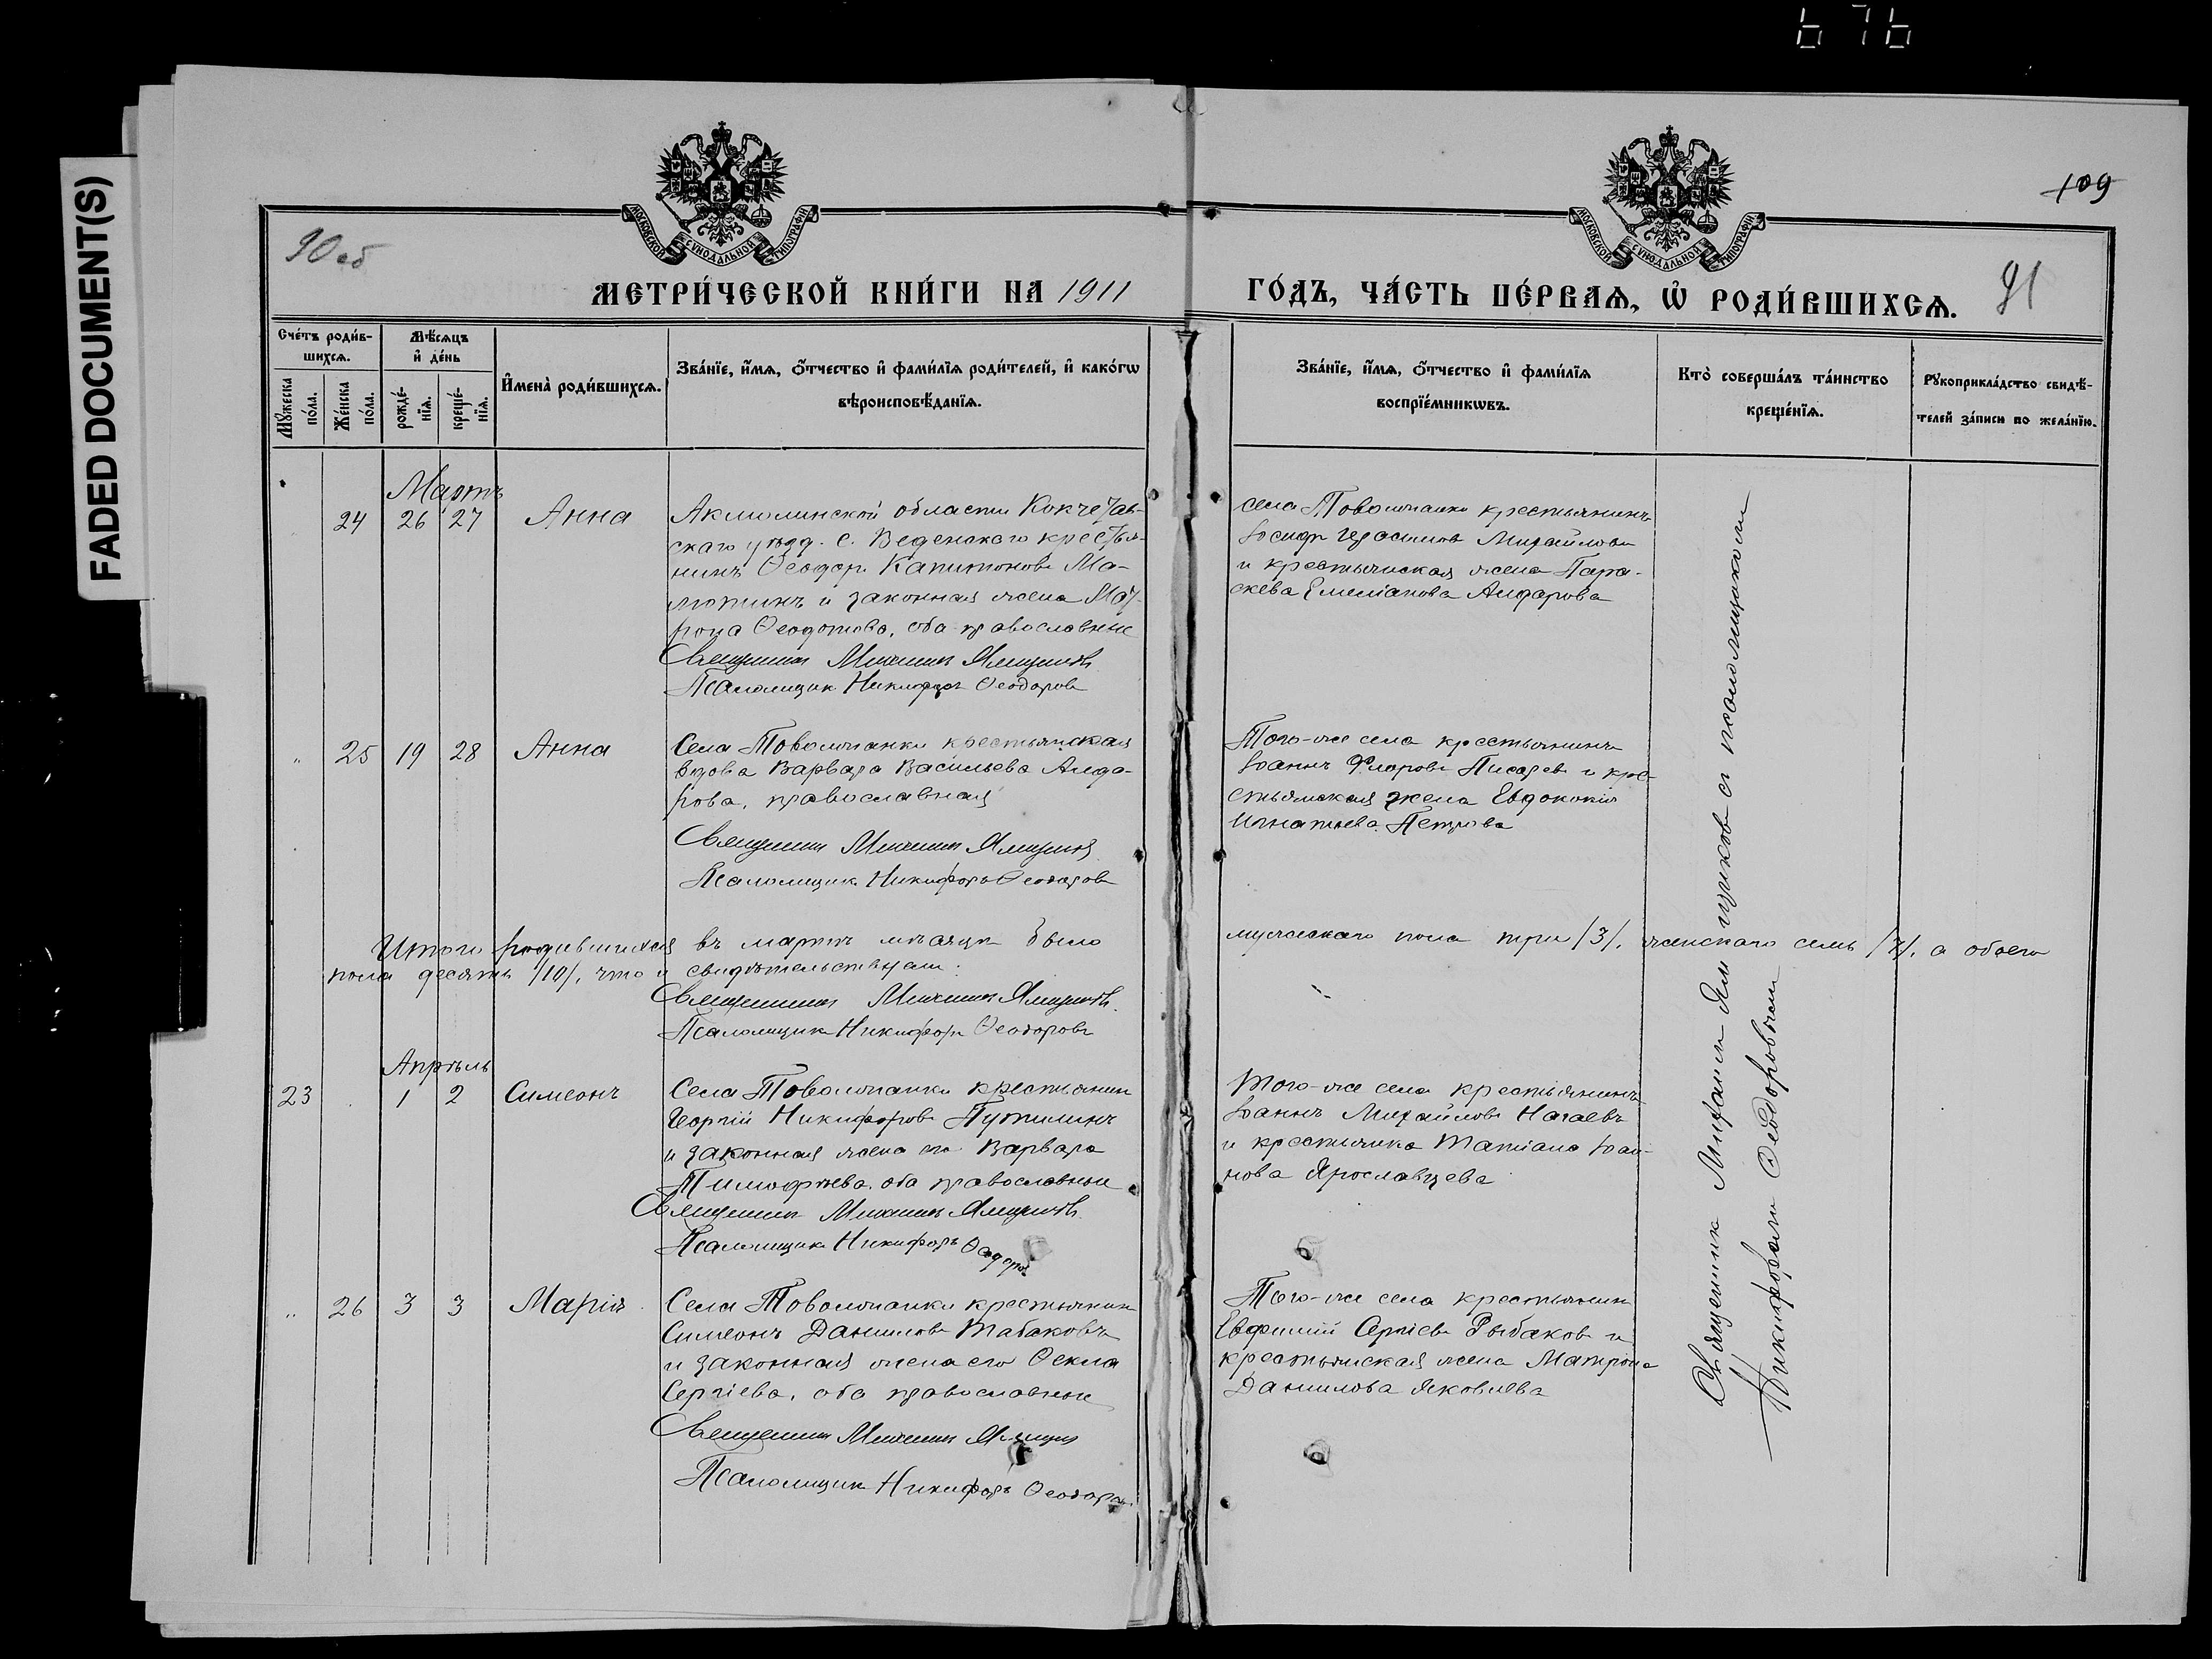 676
FADED DOCUMENT(S)
109
90 об
91
МОСКОВСКОЙ СУНОДАЛЬНОЙ ТИПОГРАФІИ
МОСКОВСКОЙ СУНОДАЛЬНОЙ ТИПОГРАФІИ
МЕТРИ́ЧЕСКОЙ КНИ́ГИ НА 1911
ГО́ДЪ, ЧА́СТЬ ПЕ́РВАѦ, Ѡ҆ РОДИ́ВШИХСѦ.
Сче́тъ роди́в-
шихсѧ.
Мꙋ́жеска
по́ла.
Же́нска
по́ла.
Мѣ́сѧцъ
и҆ де́нь
рожде́-
нїѧ.
креще́-
нїѧ.
И҆мена̀ роди́вшихсѧ.
Зва́нїе, и҆́мѧ, ѻ҆́тчество и҆ фами́лїѧ роди́телей, и҆ како́гѡ
вѣроисповѣ́данїѧ.
Зва́нїе, и҆́мѧ, ѻ҆́тчество и҆ фами́лїѧ
воспрїе́мникѡвъ.
Кто̀ соверша́лъ та́инство
креще́нїѧ.
Рꙋкоприкла́дство свидѣ́-
телей за́писи по жела́нїю.
Мартъ
24 26 27 Анна
Акмолинской области Кокчетав-
скаго уѣзд. с. Веденскаго крестья-
нинъ Ѳеодоръ Капитоновъ Ма-
лютинъ и законная жена Мат-
рона Ѳеодотова, оба православные
Священникъ Михаилъ Ямщиковъ
Псаломщикъ Никифоръ Ѳеодоровъ
села Товолжанки крестьянинъ
Іосифъ Герасимовъ Михайловъ
и крестьянская жена Пара-
скева Емеліанова Алфарова
" 25 19 28 Анна
Села Товолжанки крестьянская
вдова Варвара Васильева Алфа-
рова, православная
Священникъ Михаилъ Ямщиковъ
Псаломщикъ Никифоръ Ѳеодоровъ
Того-же села крестьянинъ
Іоаннъ Флоровъ Писаревъ и кре-
стьянская жена Евдокія
Игнатьева Петрова
Итого родившихся въ мартѣ мѣсяцѣ было мужескаго пола три /3/, женскаго семь /7/, а обоего
пола десять /10/, что и свидѣтельствуемъ:
Священникъ Михаилъ Ямщиковъ
Псаломщикъ Никифоръ Ѳеодоровъ
Апрѣль
23 1 2 Симеонъ
Села Товолжанки крестьянинъ
Георгій Никифоровъ Путилинъ
и законная жена его Варвара
Тимофѣева, оба православные
Священникъ Михаилъ Ямщиковъ
Псаломщикъ Никифоръ Ѳеодоровъ
Того-же села крестьянинъ
Іоаннъ Михайловъ Нагаевъ
и крестьянка Татіана Іоан-
нова Ярославцева
" 26 3 3 Марія
Села Товолжанки крестьянинъ
Симеонъ Даниловъ Табаковъ
и законная жена его Ѳекла
Сергіева, оба православные
Священникъ Михаилъ Ямщиковъ
Псаломщикъ Никифоръ Ѳеодоровъ
Того-же села крестьянинъ
Евфимій Сергіевъ Рыбаковъ и
крестьянская жена Матрона
Данилова Яковлева
Священникъ Михаилъ Ямщиковъ съ псаломщикомъ
Никифоромъ Ѳеодоровымъ